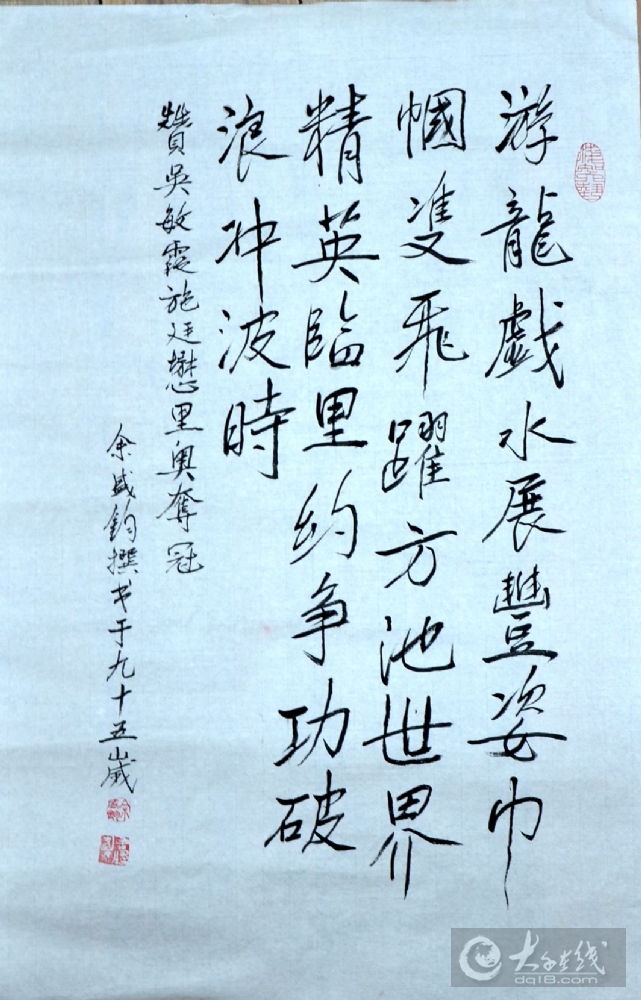 游龍戲水展豐姿巾
幗隻飛躍方池世界
精英臨里約争功破
浪冲波時
贊吳敏霞施廷懋里奥奪冠
余盛鈞撰书于九十五歲
大千在线
dq18.com